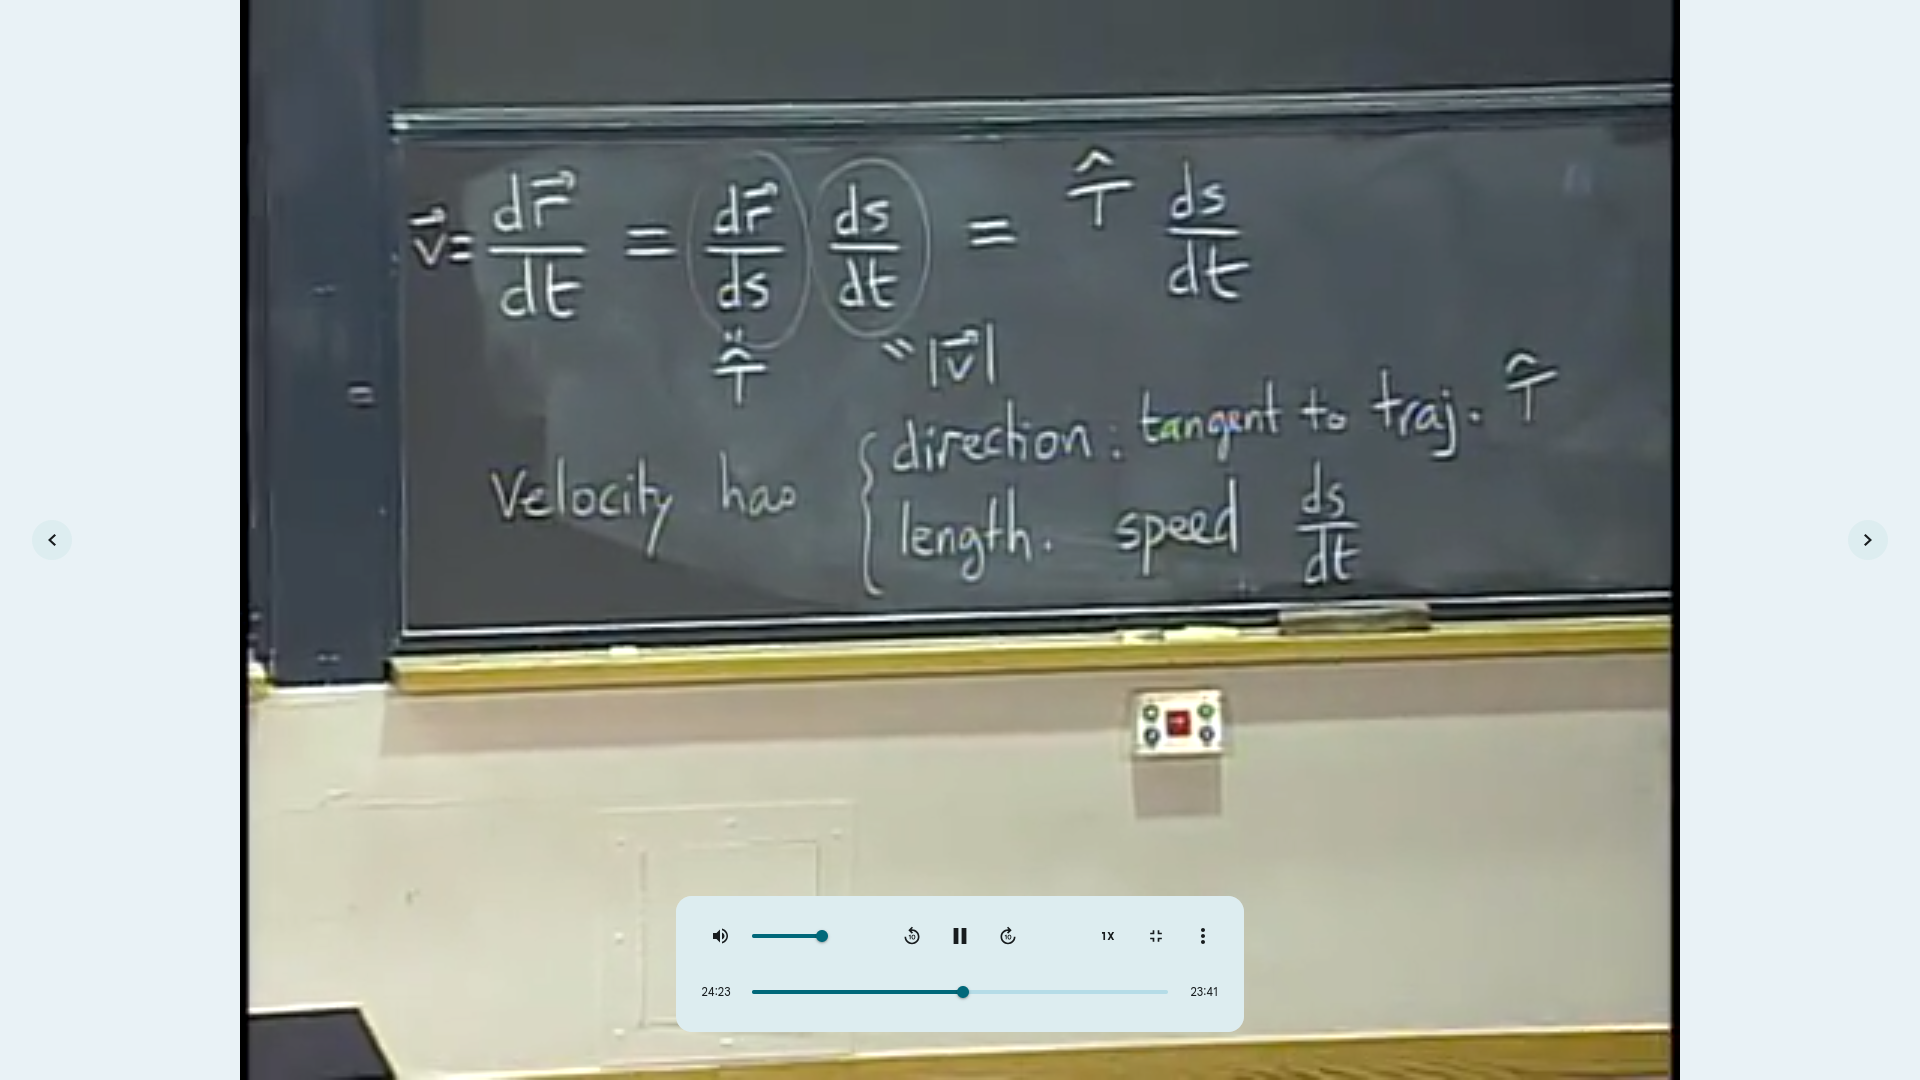 v⃗ = dr⃗/dt = dr⃗/ds ds/dt = T̂ ds/dt
" T̂ = |v⃗|
Velocity has { direction : tangent to traj. T̂
length. speed ds/dt
10 10 1X
24:23 23:41